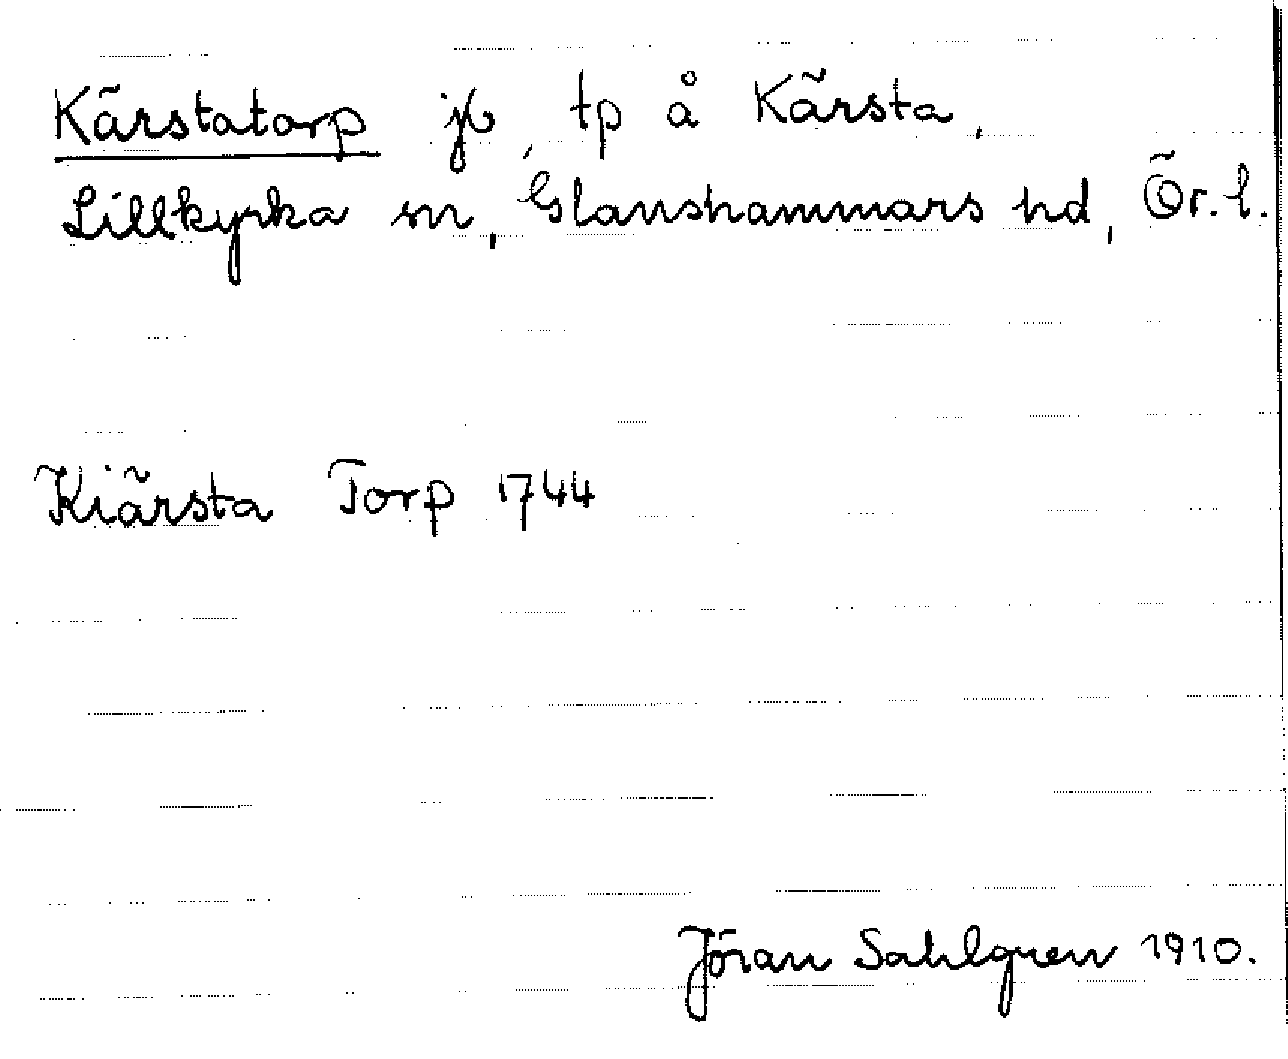 Kärstatorp jb, tp å Kärsta,
Lillkyrka sn, Glanshammars hd, Ör. l.
Kiärsta Torp 1744
Jöran Sahlgren 1910.